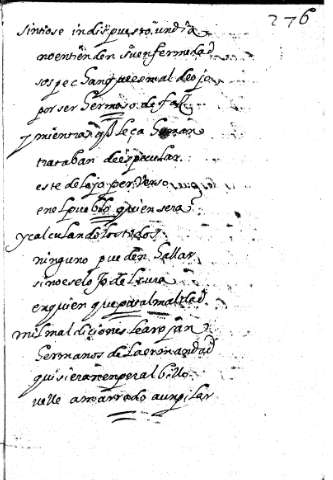 276
sintiose indispuesto un dia
no entienden su enfermedad
sospechan que es mal de ojo
por ser hermoso de faz
y mientras q̃ le çahuman
trataban de especular
este de lojo perverso
en el pueblo quien sera
y calculandolos todos
ninguno pueden hallar
sino es el de
en quien que pa tal maldad
mil maldiciones le arrojan
hermanos de la ermandad
quisieran en peralbillo
velle amarrado a un pilar